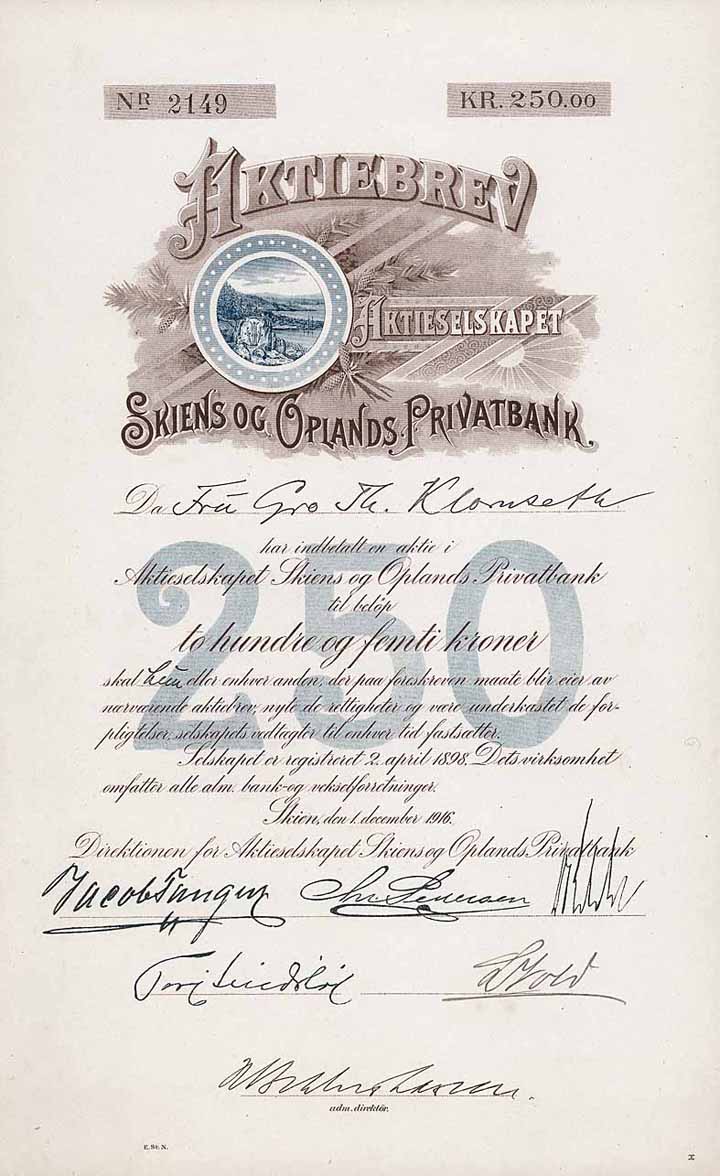 NR 2149
KR. 250.00
AKTIEBREV
AKTIESELSKAPET
SKIENS OG OPLANDS PRIVATBANK.
Da Fru Gro Th. Klomseth
250
har indbetalt en aktie i
Aktieselskapet Skiens og Oplands Privatbank
til beløp
to hundre og femti kroner
skal hun eller enhver anden, der paa foreskreven maate blir eier av
nærværende aktiebrev, nyte de rettigheter og være underkastet de for-
pligtelser, selskapets vedtægter til enhver tid fastsætter.
Selskapet er registreret 2. april 1898. Dets virksomhet
omfatter alle alm. bank- og vekselforretninger.
Skien, den 1. december 1916.
Direktionen for Aktieselskapet Skiens og Oplands Privatbank
Chr. Pedersen
adm. direktör.
E. St. N.
x